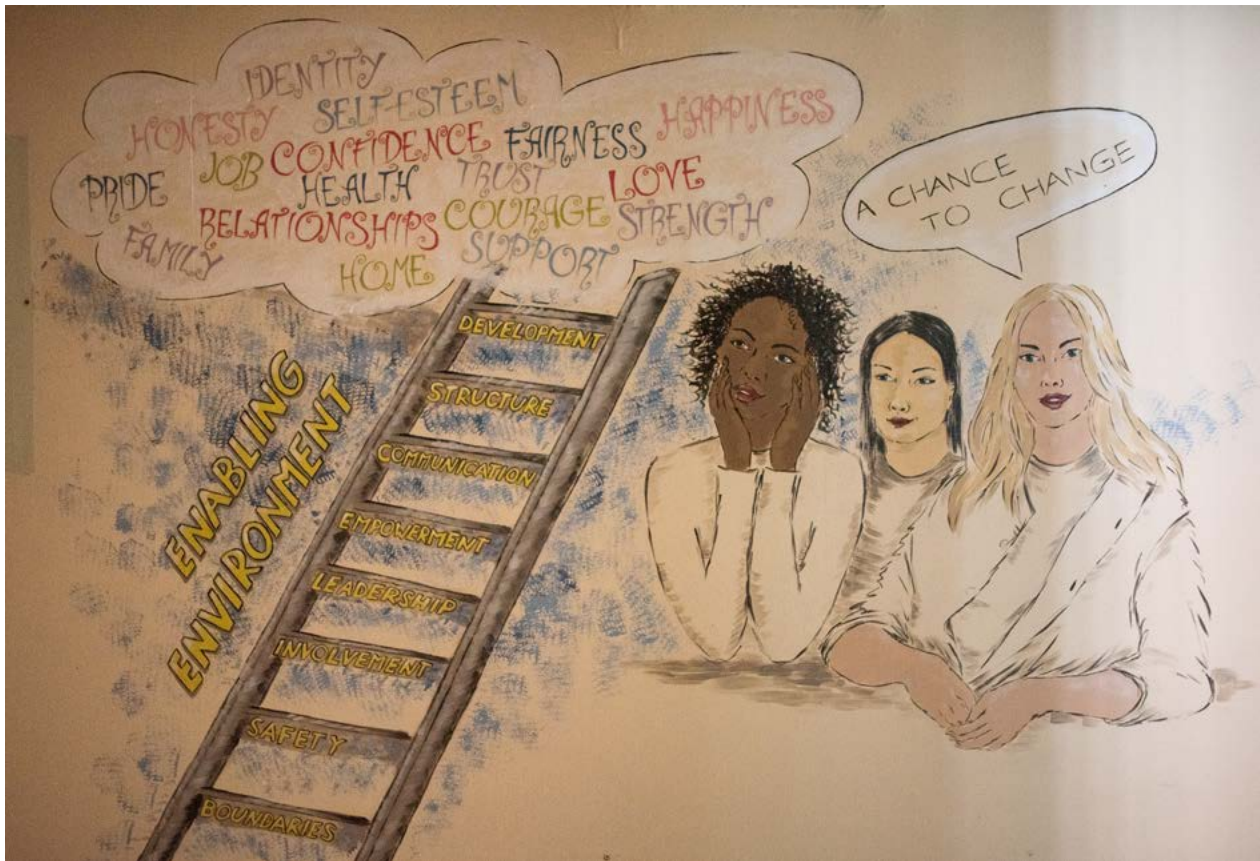 IDENTITY
SELF-ESTEEM
HONESTY
CONFIDENCE
FAIRNESS
HAPPINESS
JOB
PRIDE
HEALTH
TRUST
LOVE
RELATIONSHIPS
COURAGE
STRENGTH
FAMILY
HOME
SUPPORT
A CHANCE
TO CHANGE
ENABLING
ENVIRONMENT
DEVELOPMENT
STRUCTURE
COMMUNICATION
EMPOWERMENT
LEADERSHIP
INVOLVEMENT
SAFETY
BOUNDARIES